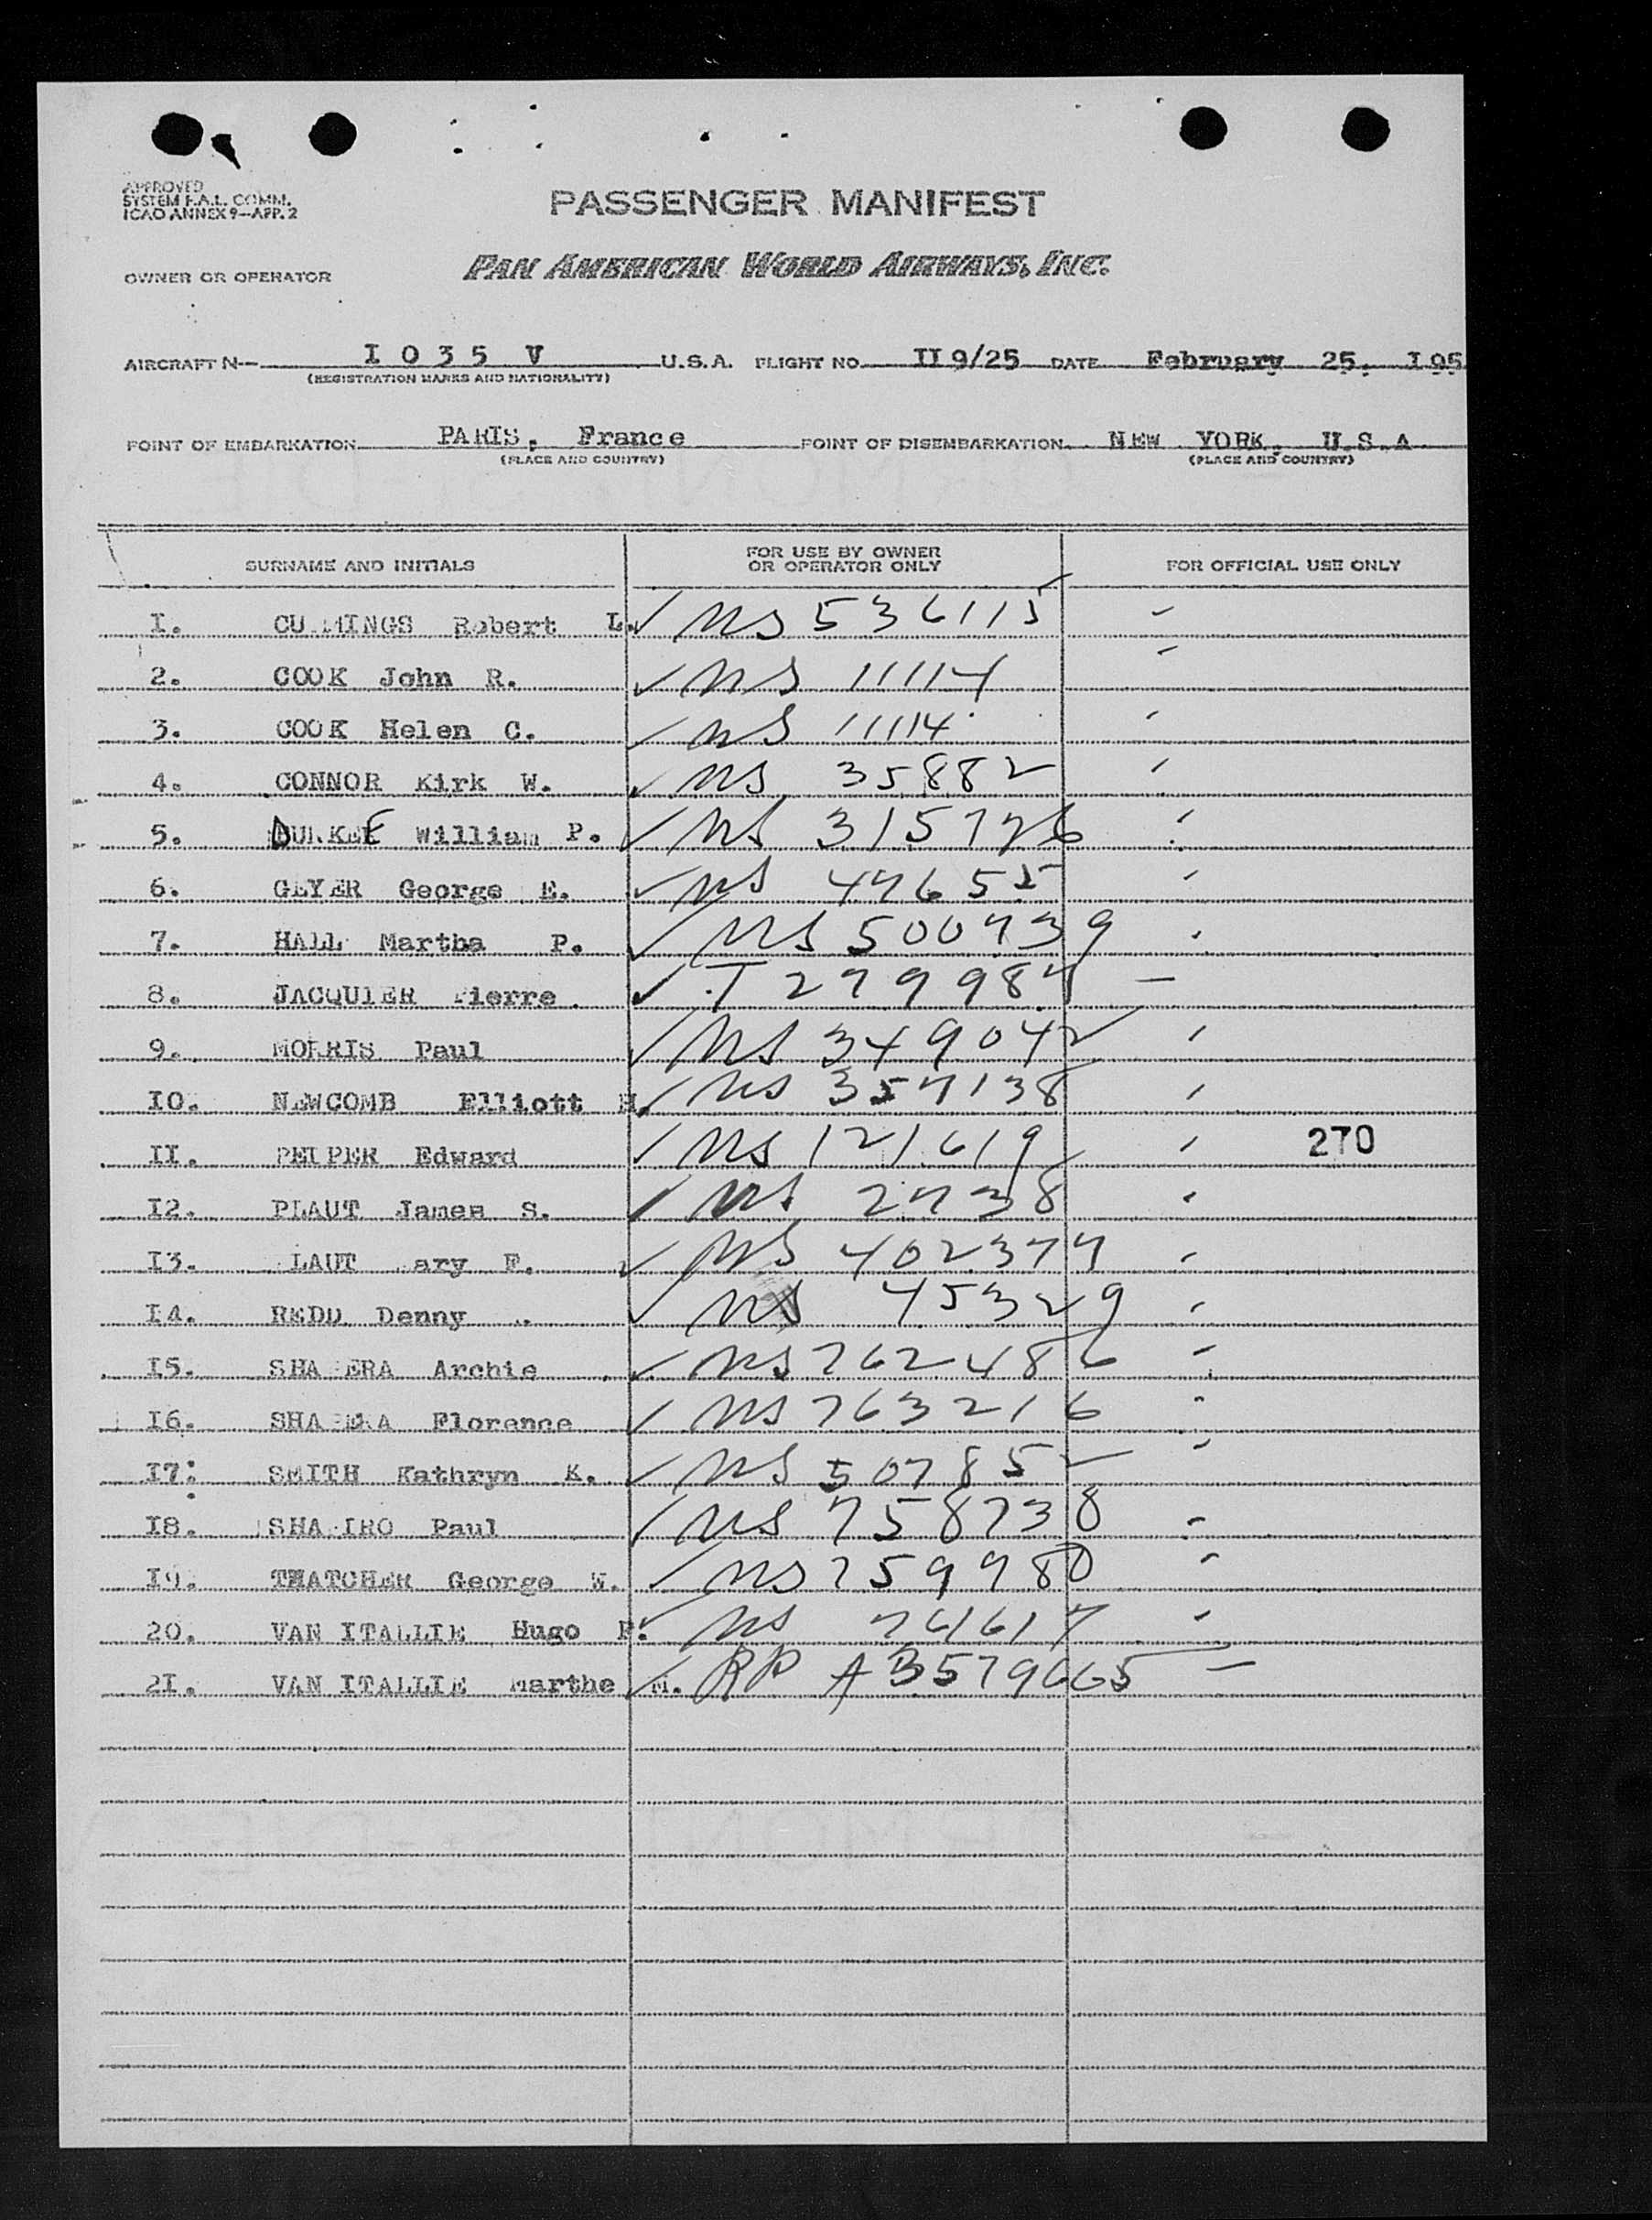 APPROVED
SYSTEM F.A.L. COMM.
ICAO ANNEX 9—APP. 2
PASSENGER MANIFEST
OWNER OR OPERATOR PAN AMERICAN WORLD AIRWAYS, INC.
AIRCRAFT N— I 0 3 5 V U.S.A. FLIGHT NO. II 9/25 DATE February 25, I95
(REGISTRATION MARKS AND NATIONALITY)
POINT OF EMBARKATION PARIS, France POINT OF DISEMBARKATION NEW YORK, U.S.A
(PLACE AND COUNTRY) (PLACE AND COUNTRY)
SURNAME AND INITIALS FOR USE BY OWNER OR OPERATOR ONLY FOR OFFICIAL USE ONLY
I. CU MINGS Robert L. ✓ US 536115 -
2. COOK John R. ✓ US 11114 -
3. COOK Helen C. ✓ US 11114 -
4. CONNOR Kirk W. ✓ US 35882 -
5. DURKEE William P. ✓ US 315776 -
6. GEYER George E. ✓ US 47655 -
7. HALL Martha P. ✓ US 500739 -
8. JACQUIER Pierre ✓ T 279987 -
9. MORRIS Paul ✓ US 349042 -
IO. NEWCOMB Elliott H. ✓ US 357138 -
II. PEIPER Edward ✓ US 121619 - 270
I2. PLAUT James S. ✓ US 2738 -
I3. LAUT ary F. ✓ US 402377 -
I4. REDD Denny ✓ US 45329 -
I5. SHA ERA Archie ✓ US 762486 -
I6. SHA ERA Florence ✓ US 763216 -
I7. SMITH Kathryn K. ✓ US 50785 -
I8. SHA IRO Paul ✓ US 758738 -
I9. THATCHER George W. ✓ US 759980 -
20. VAN ITALLIE Hugo F. ✓ US 761617 -
2I. VAN ITALLIE Marthe M. ✓ RP A B579665 -